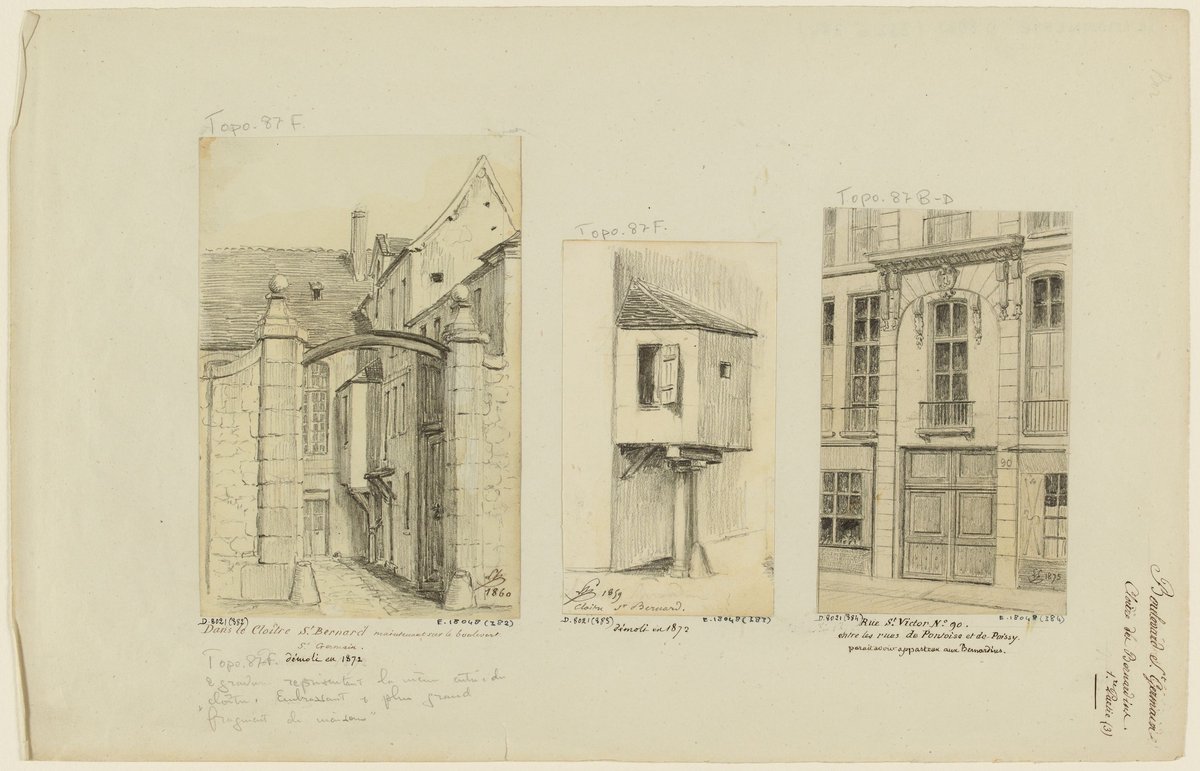 Topo. 87 F.
1860
D. 8021 (382)
E. 18048 (382)
Dans le Cloître St Bernard maintenant sur le boulevert
St Germain.
démoli en 1872
Topo. 87 F.
gravure représentant la même entrée du
cloître. Embrassant plus grand
fragment de maison"
Topo. 87 F.
1859
Cloître St Bernard.
D. 8021 (383)
démoli en 1872
Topo. 87 B-D
90
1875
E. 18048 (384)
Rue St Victor No 90.
entre les rues de Pontoise et de Poissy.
parait avoir appartenu aux Bernardins.
Boulevard St Germain
Cloître des Bernardins.
1re Partie (3)